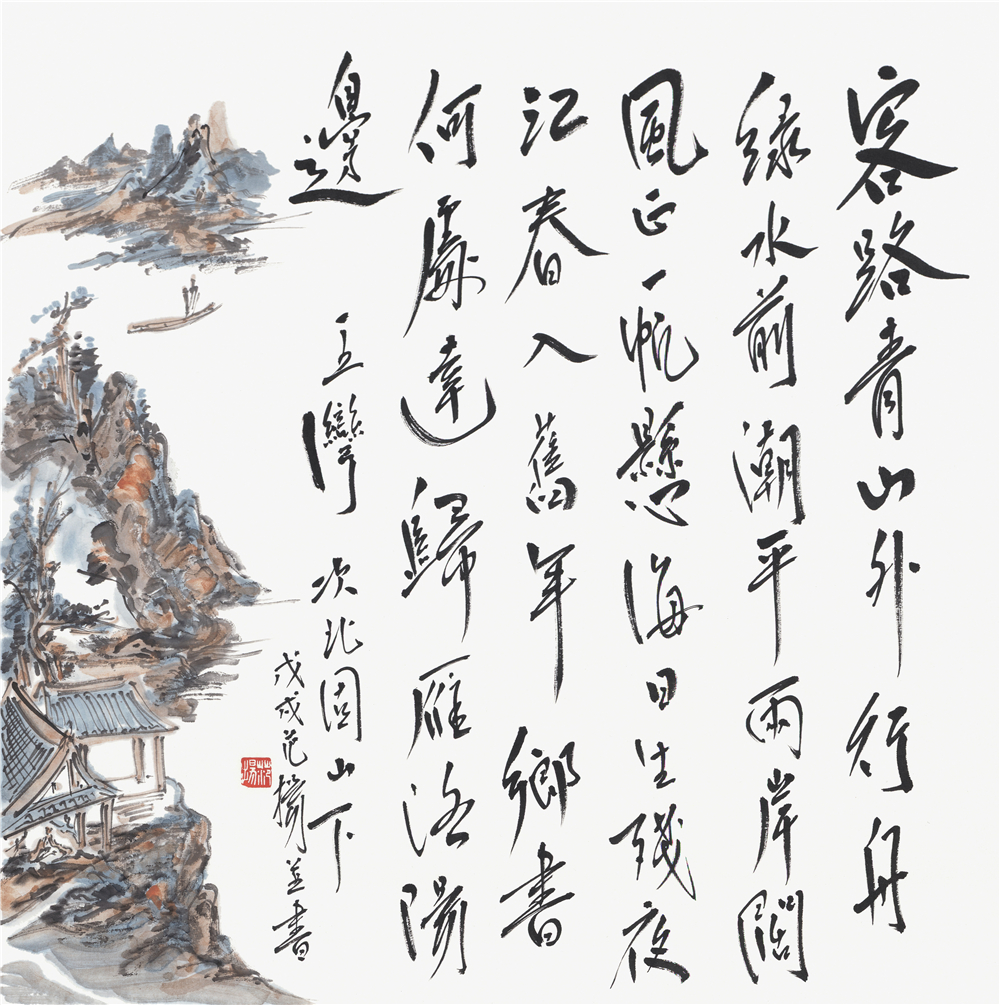 客路青山外行舟
綠水前潮平兩岸闊
風正一帆懸海日生殘夜
江春入舊年鄉書
何處達歸雁洛陽
邊
王灣 次北固山下
戊戌范揚並書
范揚